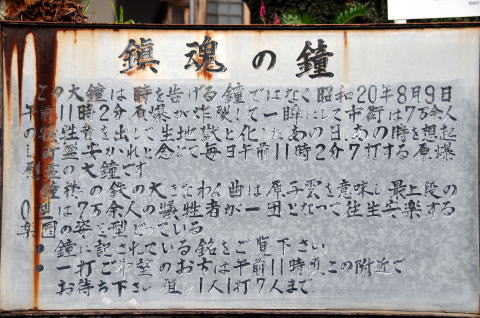 鎮魂の鐘
この大鐘は時を告げる鐘ではなく昭和20年8月9日
午前11時2分原爆が炸裂して一瞬にして市街は7万余人
の犠牲者を出して生地獄と化したあの日、あの時を想起
し御霊安かれと念じて毎日午前11時2分7打する原爆
慰霊の大鐘です
鐘襟の鉄の大きなわん曲は原子雲を意味し最上段の
〇型は7万余人の犠牲者が一団となって往生安楽する
楽園の姿を型どっている
● 鐘に記されている銘をご覧下さい
● 一打ご希望のお方は午前11時頃、この附近で
お待ち下さい 但し1人1打7人まで